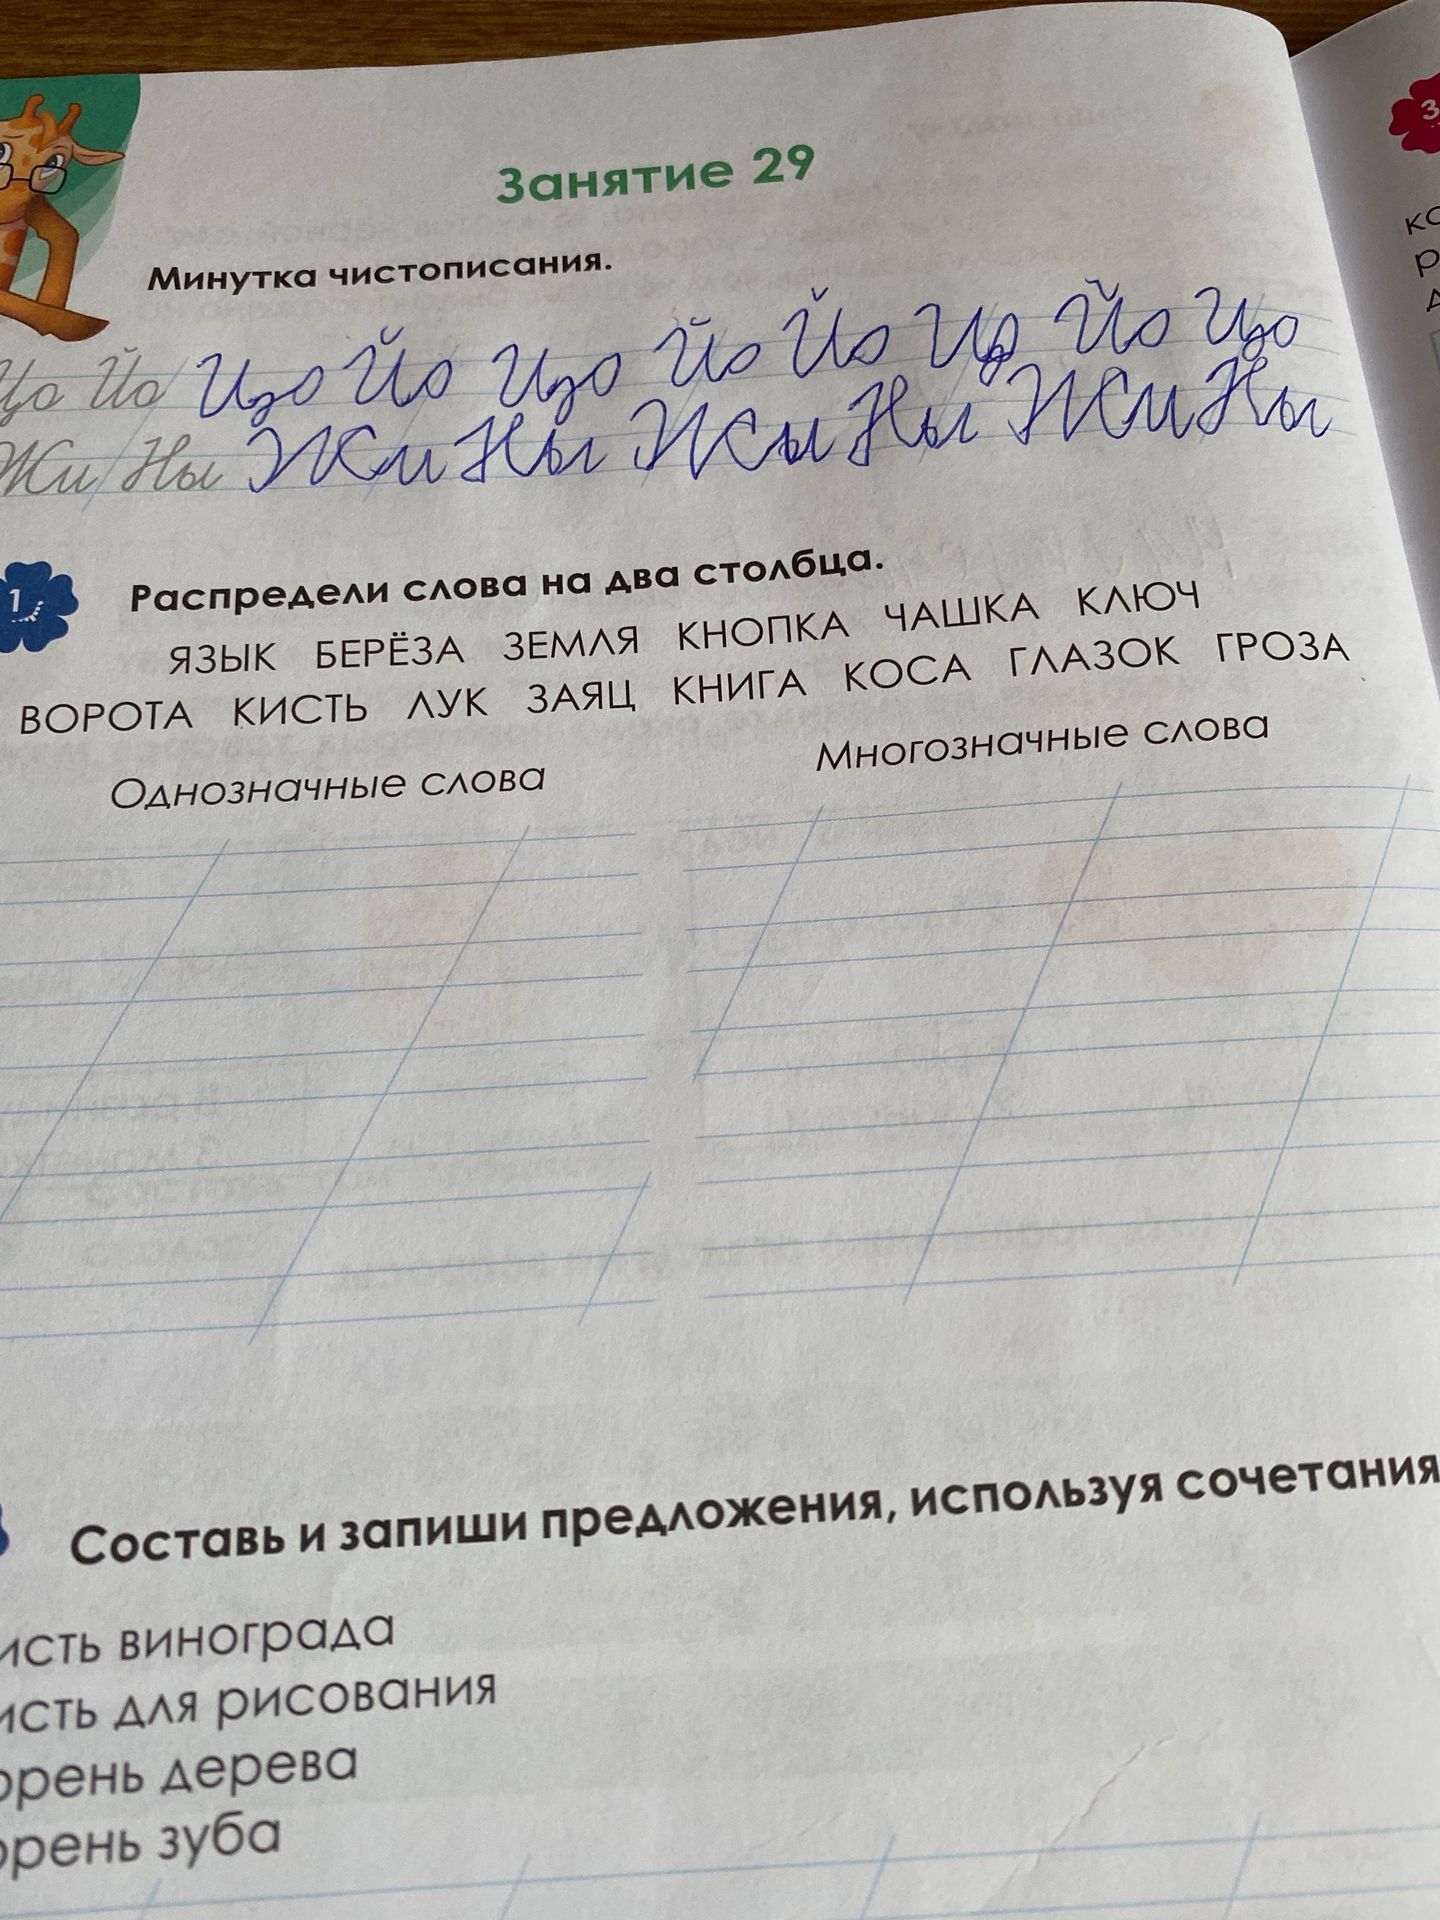 Занятие 29
Минутка чистописания.
Цо Йо Цо Йо Цо Йо Йо Цо Йо Цо
Жи Ны Жи Ны Жи Ны Жи Ны
1
Распредели слова на два столбца.
ЯЗЫК БЕРЁЗА ЗЕМЛЯ КНОПКА ЧАШКА КЛЮЧ
ВОРОТА КИСТЬ ЛУК ЗАЯЦ КНИГА КОСА ГЛАЗОК ГРОЗА
Однозначные слова
Многозначные слова
Составь и запиши предложения, используя сочетания
исть винограда
исть для рисования
орень дерева
орень зуба
3